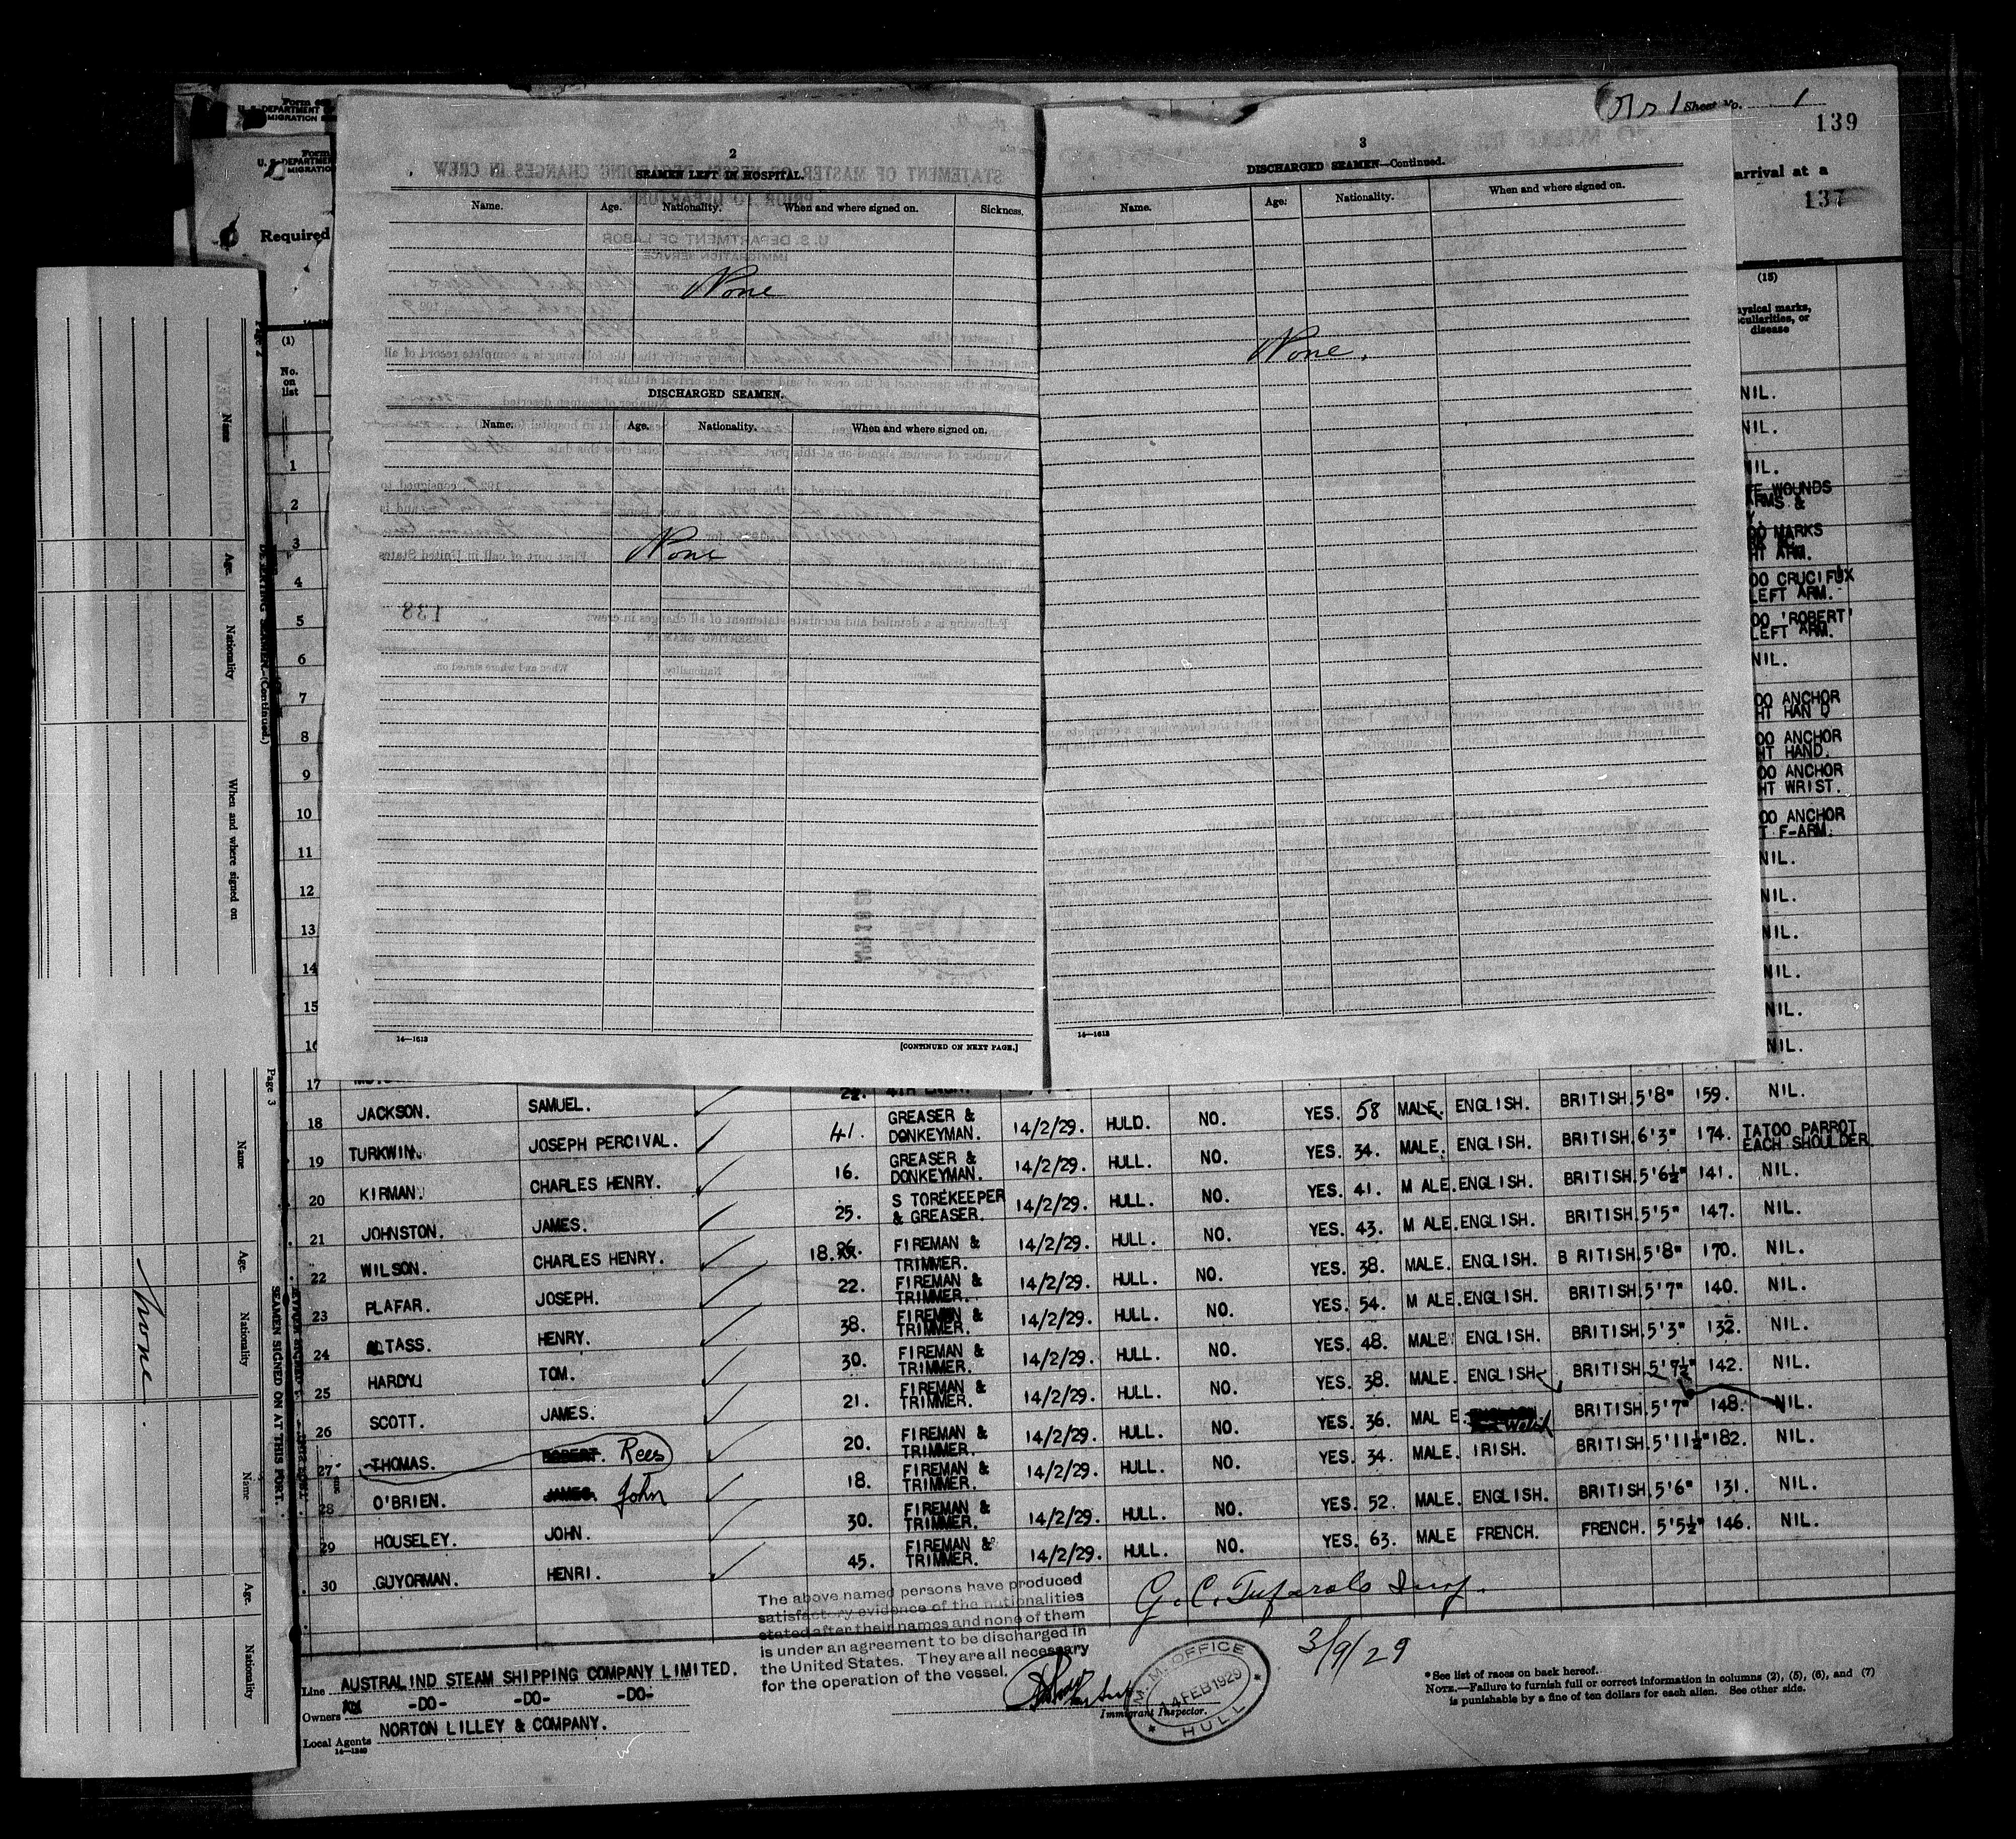 Sheet No. 1
139
arrival at a
137
Form
U. S. DEPARTMENT
MIGRATION
Form
U. S. DEPARTMENT
MIGRATION
Required
2
SEAMEN LEFT IN HOSPITAL.
Name. Age. Nationality. When and where signed on. Sickness.
None
DISCHARGED SEAMEN.
Name. Age. Nationality. When and where signed on.
None
138
14—1613
[CONTINUED ON NEXT PAGE.]
3
DISCHARGED SEAMEN—Continued.
Name. Age. Nationality. When and where signed on.
None.
14—1613
(15)
ysical marks,
culiarities, or
disease
NIL.
NIL.
NIL.
WOUNDS
ARMS &
OO MARKS
HT ARM.
OO CRUCIFUX
LEFT ARM.
OO 'ROBERT'
LEFT ARM.
NIL.
OO ANCHOR
HT HAN D
OO ANCHOR
HT HAND.
OO ANCHOR
HT WRIST.
OO ANCHOR
T F-ARM.
NIL.
NIL.
NIL.
NIL.
NIL.
NIL.
(1)
No.
on
list
1
2
3
4
5
6
7
8
9
10
11
12
13
14
15
16
17
18 JACKSON. SAMUEL. 41. GREASER & DONKEYMAN. 14/2/29. HULD. NO. YES. 58 MALE. ENGLISH. BRITISH. 5'8" 159. NIL.
19 TURKWIN. JOSEPH PERCIVAL. 16. GREASER & DONKEYMAN. 14/2/29. HULL. NO. YES. 34. MALE. ENGLISH. BRITISH. 6'3" 174. TATOO PARROT EACH SHOULDER.
20 KIRMAN. CHARLES HENRY. 25. S TOREKEEPER & GREASER. 14/2/29. HULL. NO. YES. 41. M ALE. ENGLISH. BRITISH. 5'6½" 141. NIL.
21 JOHNSTON. JAMES. 18. FIREMAN & TRIMMER. 14/2/29. HULL. NO. YES. 43. M ALE. ENGLISH. BRITISH. 5'5" 147. NIL.
22 WILSON. CHARLES HENRY. 22. FIREMAN & TRIMMER. 14/2/29. HULL. NO. YES. 38. MALE. ENGLISH. B RITISH. 5'8" 170. NIL.
23 PLAFAR. JOSEPH. 38. FIREMAN & TRIMMER. 14/2/29. HULL. NO. YES. 54. M ALE. ENGLISH. BRITISH. 5'7" 140. NIL.
24 TASS. HENRY. 30. FIREMAN & TRIMMER. 14/2/29. HULL. NO. YES. 48. MALE ENGLISH. BRITISH. 5'3" 132. NIL.
25 HARDY. TOM. 21. FIREMAN & TRIMMER. 14/2/29. HULL. NO. YES. 38. MALE. ENGLISH BRITISH. 5'7½" 142. NIL.
26 SCOTT. JAMES. 20. FIREMAN & TRIMMER. 14/2/29. HULL. NO. YES. 36. MAL E. Welsh BRITISH. 5'7" 148. NIL.
27 THOMAS. ROBERT. Rees 18. FIREMAN & TRIMMER. 14/2/29. HULL. NO. YES. 34. MALE. IRISH. BRITISH. 5'11½" 182. NIL.
28 O'BRIEN. JAMES. John 30. FIREMAN & TRIMMER. 14/2/29. HULL. NO. YES. 52. MALE. ENGLISH. BRITISH. 5'6" 131. NIL.
29 HOUSELEY. JOHN. 45. FIREMAN & TRIMMER. 14/2/29. HULL. NO. YES. 63. MALE FRENCH. FRENCH. 5'5½" 146. NIL.
30 GUYORMAN. HENRI.
The above named persons have produced
satisfactory evidence of the nationalities
stated after their names and none of them
is under an agreement to be discharged in
the United States. They are all necessary
for the operation of the vessel.
Immigrant Inspector.
M. M. OFFICE
14 FEB 1929
HULL
3/9/29
Line AUSTRALIND STEAM SHIPPING COMPANY LIMITED.
Owners -DO- -DO- -DO-
Local Agents NORTON LILLEY & COMPANY.
14—1240
*See list of races on back hereof.
NOTE.—Failure to furnish full or correct information in columns (2), (5), (6), and (7)
is punishable by a fine of ten dollars for each alien. See other side.
Page 2
Name Age. Nationality When and where signed on
Page 3
SEAMEN SIGNED ON AT THIS PORT.
Name Age. Nationality
None.
Name Age. Nationality